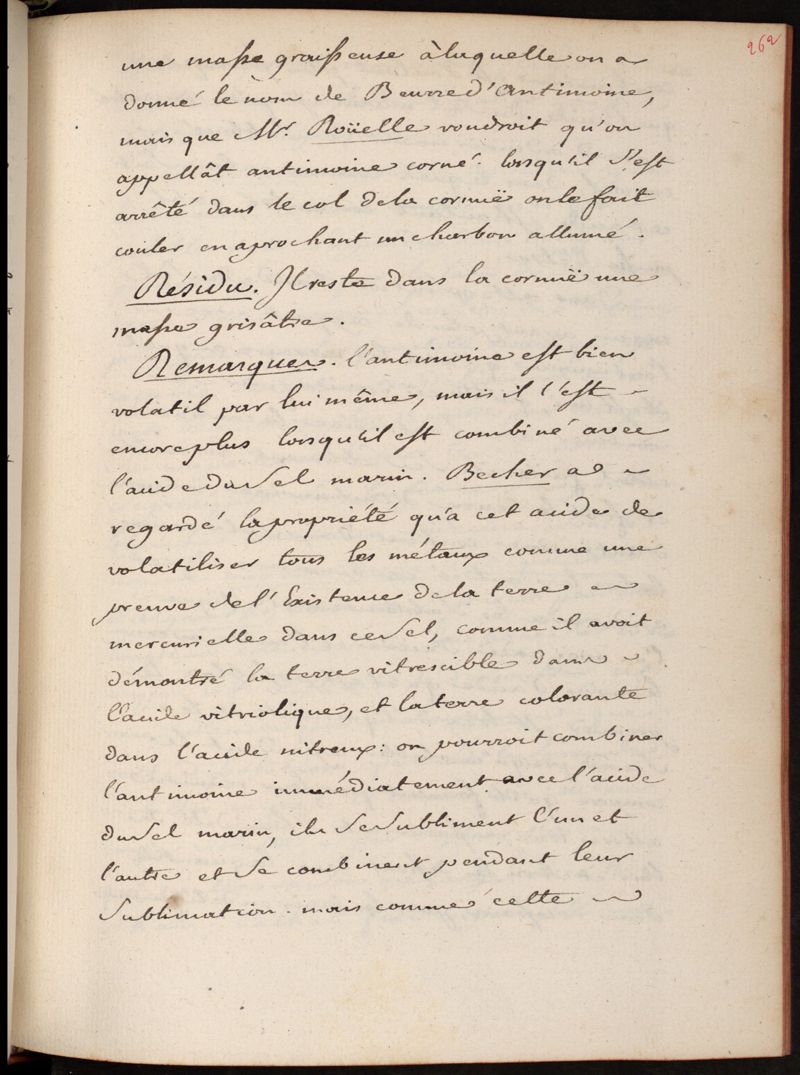 262
une masse graisseuse à laquelle on a
donné le nom de Beurre d'antimoine,
mais que Mr. Roüelle voudroit qu'on
appellât antimoine corné. lorsqu'il s'est
arrêté dans le col de la cornuë on le fait
couler en aprochant un charbon allumé.
Résidu. Il reste dans la cornuë une
masse grisâtre.
Remarques. l'antimoine est bien
volatil par lui même, mais il l'est
encore plus lorsqu'il est combiné avec
l'acide du sel marin. Becher a
regardé la propriété qu'a cet acide de
volatiliser tous les métaux comme une
preuve de l'Existence de la terre
mercurielle dans ce sel, comme il avoit
démontré la terre vitrescible dans
l'acide vitriolique, et la terre colorante
dans l'acide nitreux: on pourroit combiner
l'antimoine immédiatement avec l'acide
du sel marin, ils se subliment l'un et
l'autre et se combinent pendant leur
sublimation. mais comme cette